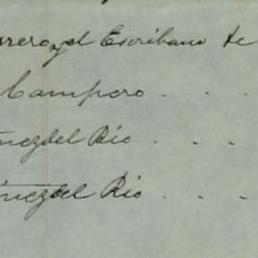 rero y el Escribano de
Campero . . .
nez del Rio . . .
inez del Rio . . .